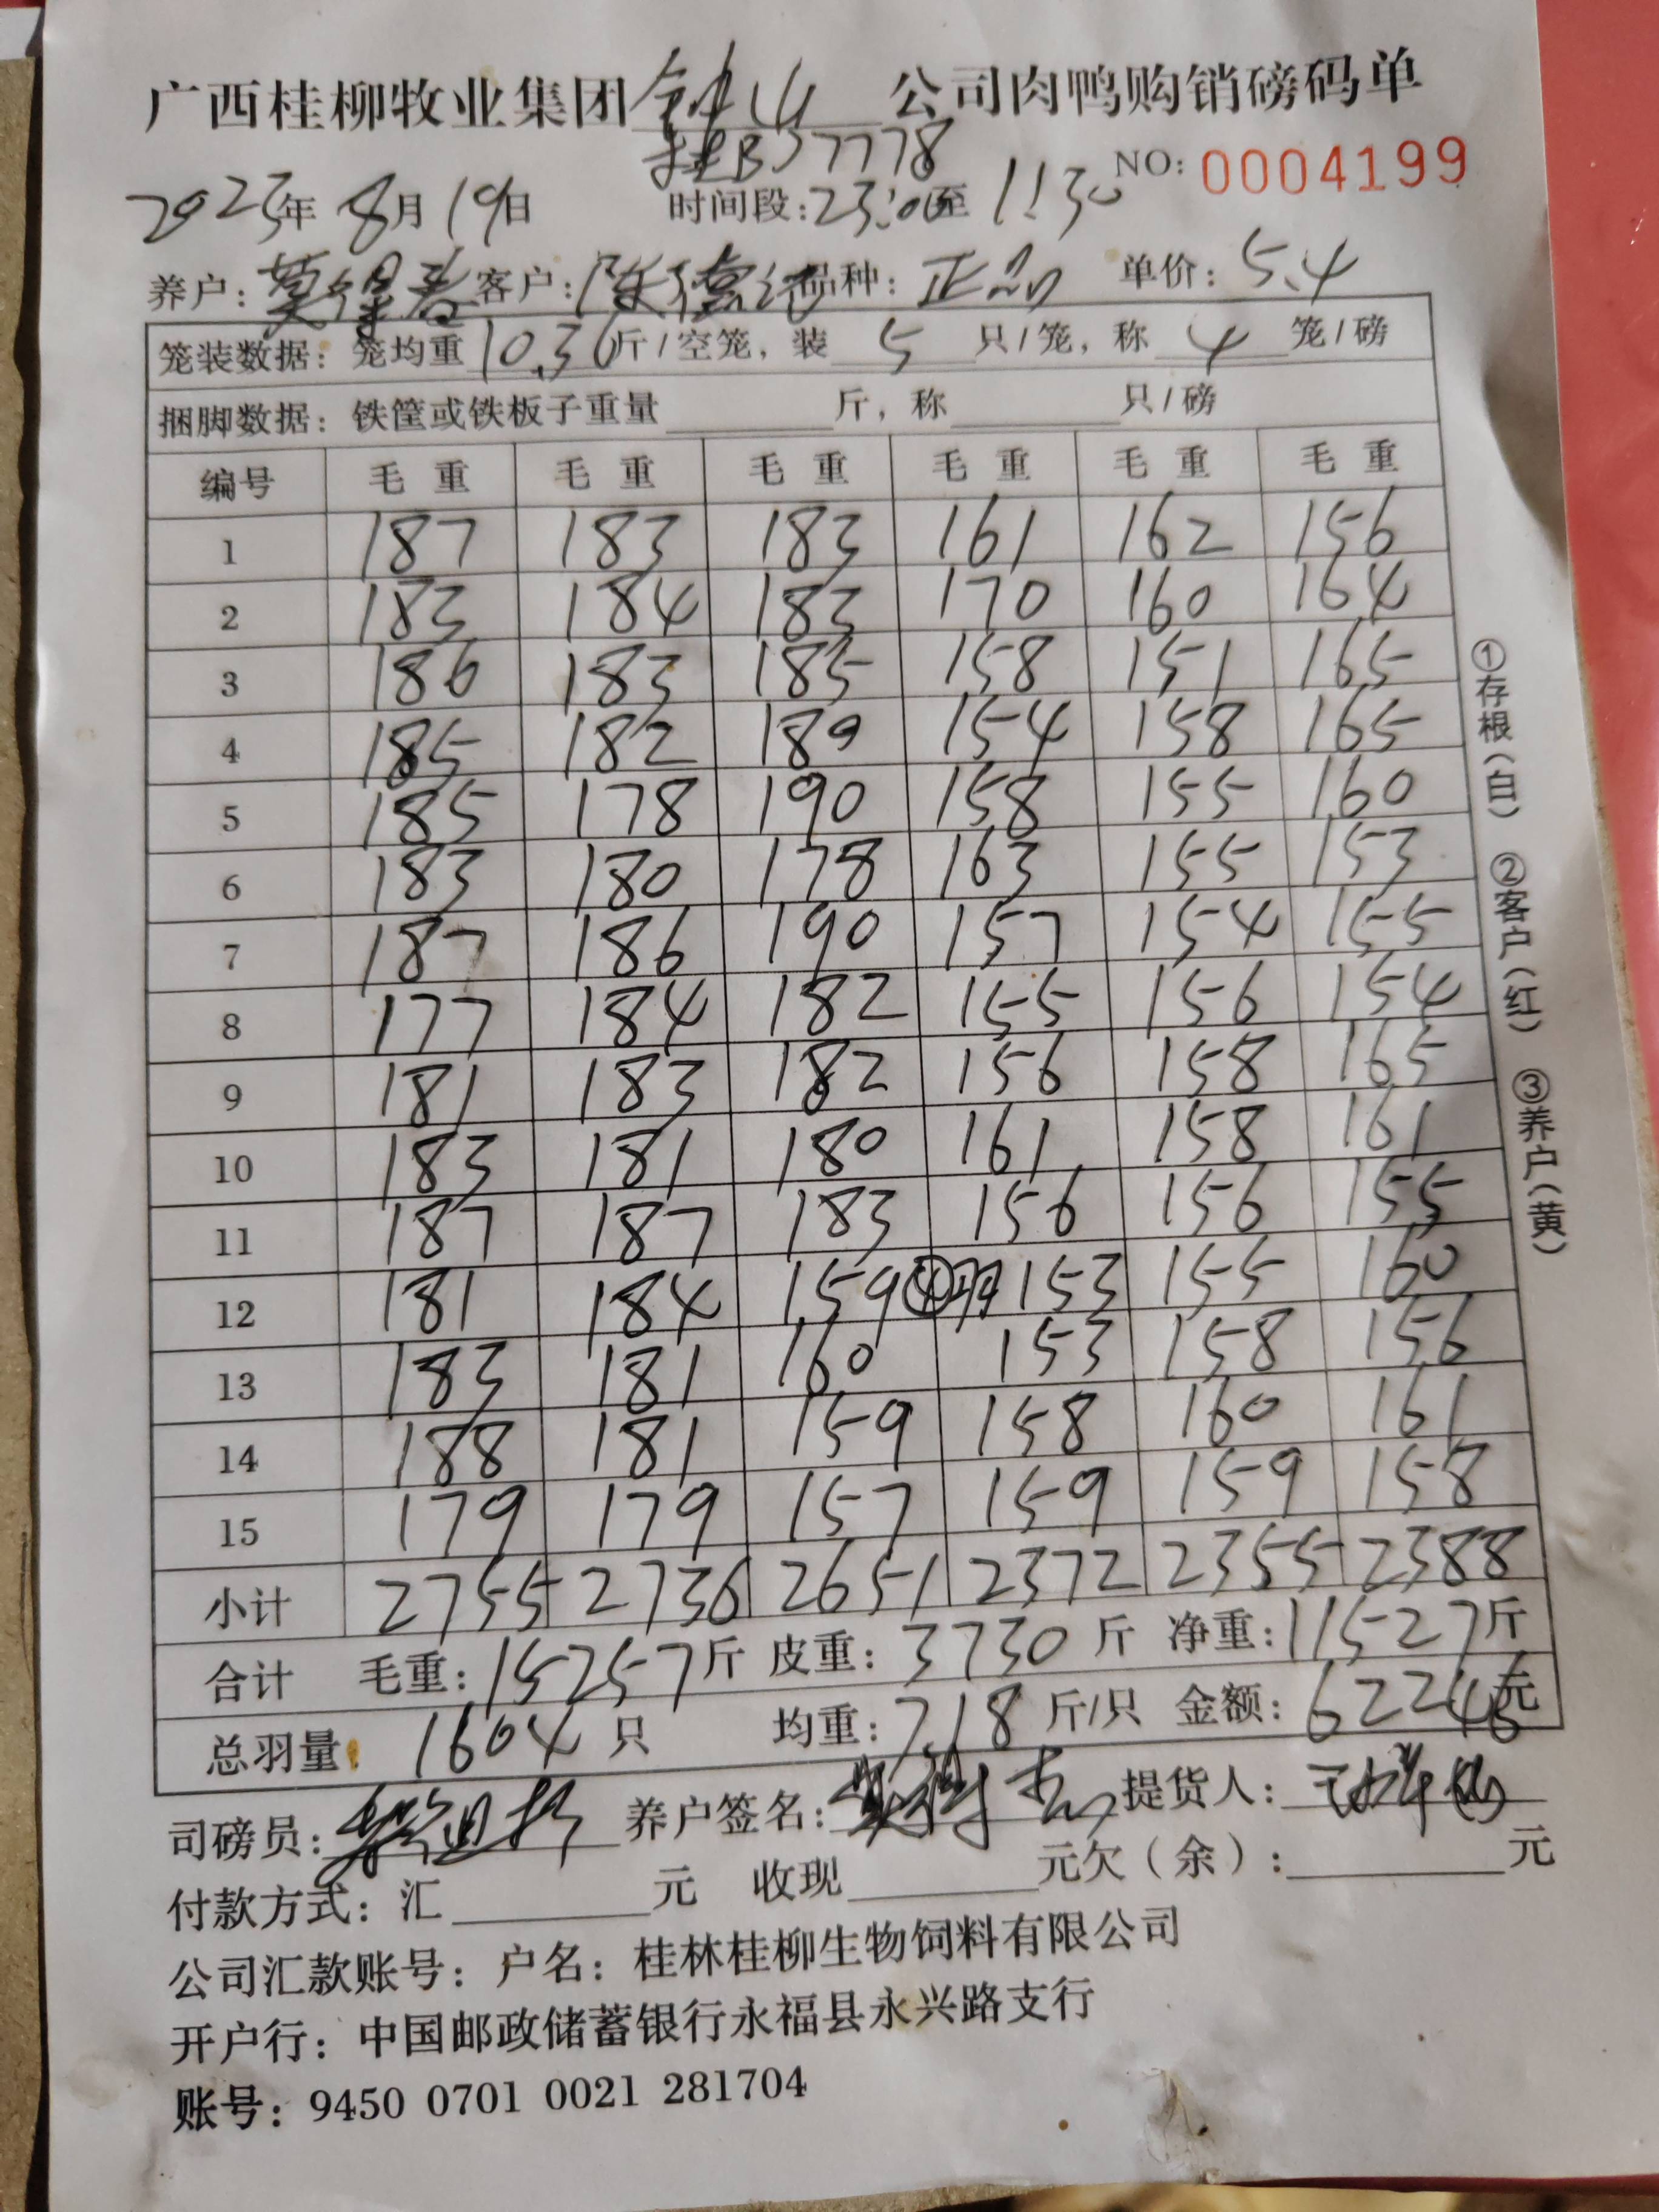 广西桂柳牧业集团钟山公司肉鸭购销磅码单
桂B37778
NO: 0004199
2025年8月19日 时间段:23:00至1:30
养户: 莫 客户: 陈德 品种: 正品 单价: 5.4
笼装数据: 笼均重10.36斤/空笼, 装5只/笼, 称4笼/磅
捆脚数据: 铁筐或铁板子重量 斤, 称 只/磅
编号 毛重 毛重 毛重 毛重 毛重 毛重
1 187 183 183 161 162 156
2 183 184 183 170 160 164
3 186 183 185 158 151 165
4 185 182 189 154 158 165
5 185 178 190 158 155 160
6 183 180 178 163 155 153
7 187 186 190 157 154 155
8 177 184 182 155 156 154
9 181 183 182 156 158 165
10 183 181 180 161 158 161
11 187 187 183 156 156 155
12 181 184 159④羽 153 155 160
13 183 181 160 153 158 156
14 188 181 159 158 160 161
15 179 179 157 159 159 158
小计 2755 2736 2651 2372 2355 2388
合计 毛重: 15257斤 皮重: 3730斤 净重: 11527斤
总羽量: 1604只 均重: 7.18斤/只 金额: 62246元
司磅员: 养户签名: 提货人:
付款方式: 汇 元 收现 元欠(余): 元
公司汇款账号: 户名: 桂林桂柳生物饲料有限公司
开户行: 中国邮政储蓄银行永福县永兴路支行
账号: 9450 0701 0021 281704
①存根(白) ②客户(红) ③养户(黄)